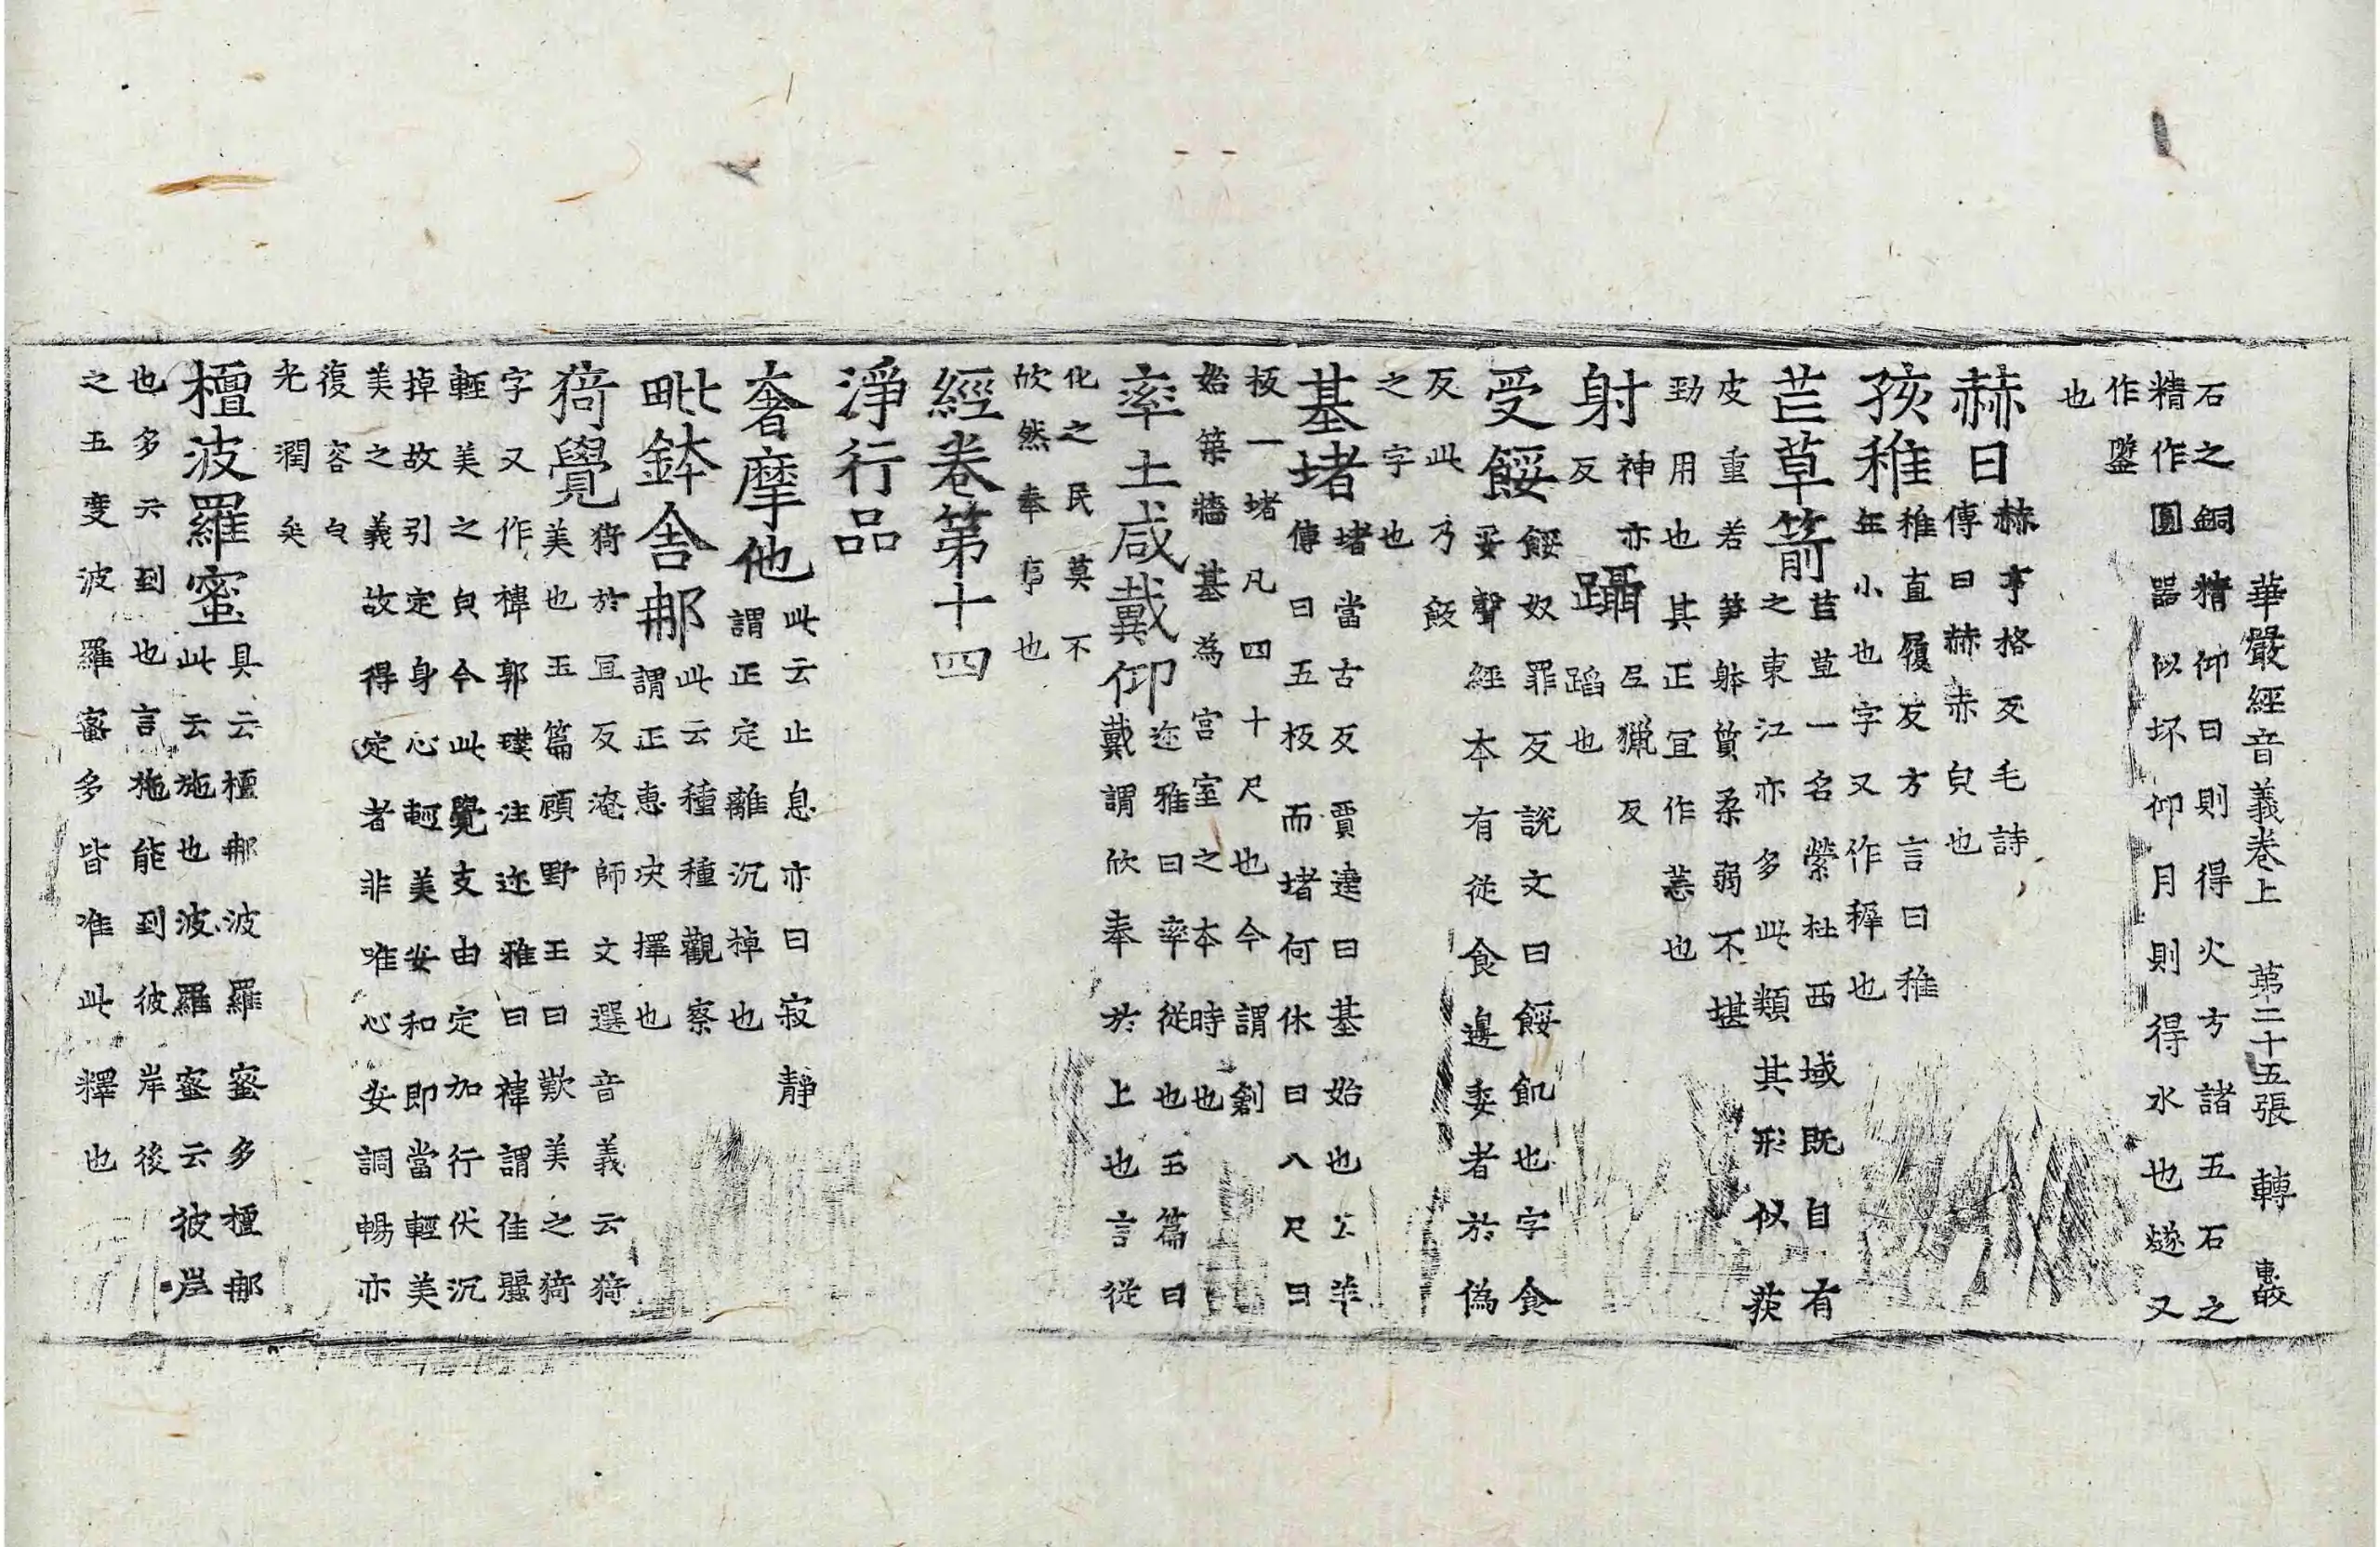 華嚴經音義卷上　第二十五張　轉
石之銅精仰日則得火方諸五石之
精作圓器似坏仰月則得水也燧又
作鐆
也
赫日
赫亨格反毛詩
傳曰赫赤皃也
孩稚
稚直履反方言曰稚
年小也字又作稺也
芒草箭
芒草一名縈杜西域既自有
之東江亦多此類其形似荻
皮重若笋躰質柔弱不堪
勁用也其正冝作䓤也
射
神亦
反
躡
𡰱獵反
蹈也
受餧
餧奴罪反說文曰餧飢也字食
妥聲經本有從食邊委者於偽
反此乃餧
之字也
基堵
堵當古反賈逵曰基始也公羊
傳曰五板而堵何休曰八尺曰
板一堵凡四十尺也今謂創
始築牆基為宮室之本時也
率土咸戴仰
迩雅曰率從也玉篇曰
戴謂欣奉於上也言從
化之民莫不
欣然奉事也
經卷第十四
淨行品
奢摩他
此云止息亦曰寂靜
謂正定離沉掉也
毗鉢舍那
此云種種觀察
謂正惠決擇也
猗覺
猗於冝反淹師文選音義云猗
美也玉篇頋野王曰歎美之猗
字又作禕郭璞注迩雅曰禕謂佳麗
輕美之皃今此覺支由定加行伏沉
掉故引定身心輕美安和即當輕美
美之義故得定者非唯心安調暢亦
復容皃
光潤矣
檀波羅蜜
具云檀那波羅蜜多檀那
此云施也波羅蜜云彼岸
也多云到也言施能到彼岸後
之五度波羅蜜多皆准此釋也